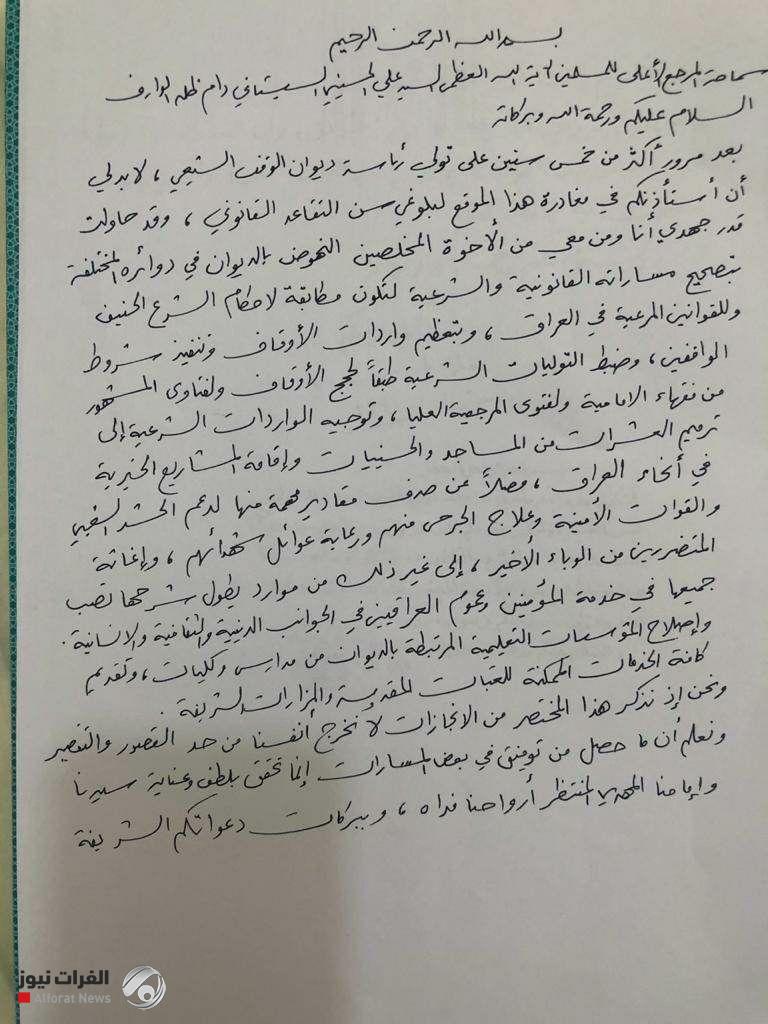 بسم الله الرحمن الرحيم
سماحة المرجع الأعلى للمسلمين آية الله العظمى السيد علي الحسيني السيستاني دام ظله الوارف
السلام عليكم ورحمة الله وبركاته
بعد مرور أكثر من خمس سنين على تولي رئاسة ديوان الوقف الشيعي ، لا بد لي
أن أستأذنكم في مغادرة هذا الموقع لبلوغي سن التقاعد القانوني ، وقد حاولت
قدر جهدي أنا ومن معي من الأخوة المخلصين النهوض بالديوان في دوائره المختلفة
بتصحيح مساراته القانونية والشرعية لتكون مطابقة لاحكام الشرع الحنيف
وللقوانين المرعية في العراق ، وبتعظيم واردات الأوقاف وتنفيذ شروط
الواقفين ، وضبط التوليات الشرعية طبقاً لحجج الأوقاف ولفتاوى المشهور
من فقهاء الامامية ولفتوى المرجعية العليا ، وتوجيه الواردات الشرعية إلى
ترميم العشرات من المساجد والحسينيات وإقامة المشاريع الخيرية
في أنحاء العراق ، فضلاً عن صرف مقادير مهمة منها لدعم الحشد الشعبي
والقوات الأمنية وعلاج الجرحى منهم ورعاية عوائل شهدائهم ، وإغاثة
المتضررين من الوباء الأخير ، إلى غير ذلك من موارد يطول شرحها تصب
جميعها في خدمة المؤمنين وعموم العراقيين في الجوانب الدينية والثقافية والانسانية .
وإصلاح المؤسسات التعليمية المرتبطة بالديوان من مدارس وكليات ، وتقديم
كافة الخدمات الممكنة للعتبات المقدسة والمزارات الشريفة .
ونحن إذ نذكر هذا المختصر من الانجازات لا نخرج أنفسنا من حد القصور والتقصير
ونعلم أن ما حصل من توفيق في بعض المسارات إنما تحقق بلطف وعناية سيدنا
وإمامنا المهدي المنتظر أرواحنا فداه ، وببركات دعواتكم الشريفة
الفرات نيوز
Alforat News